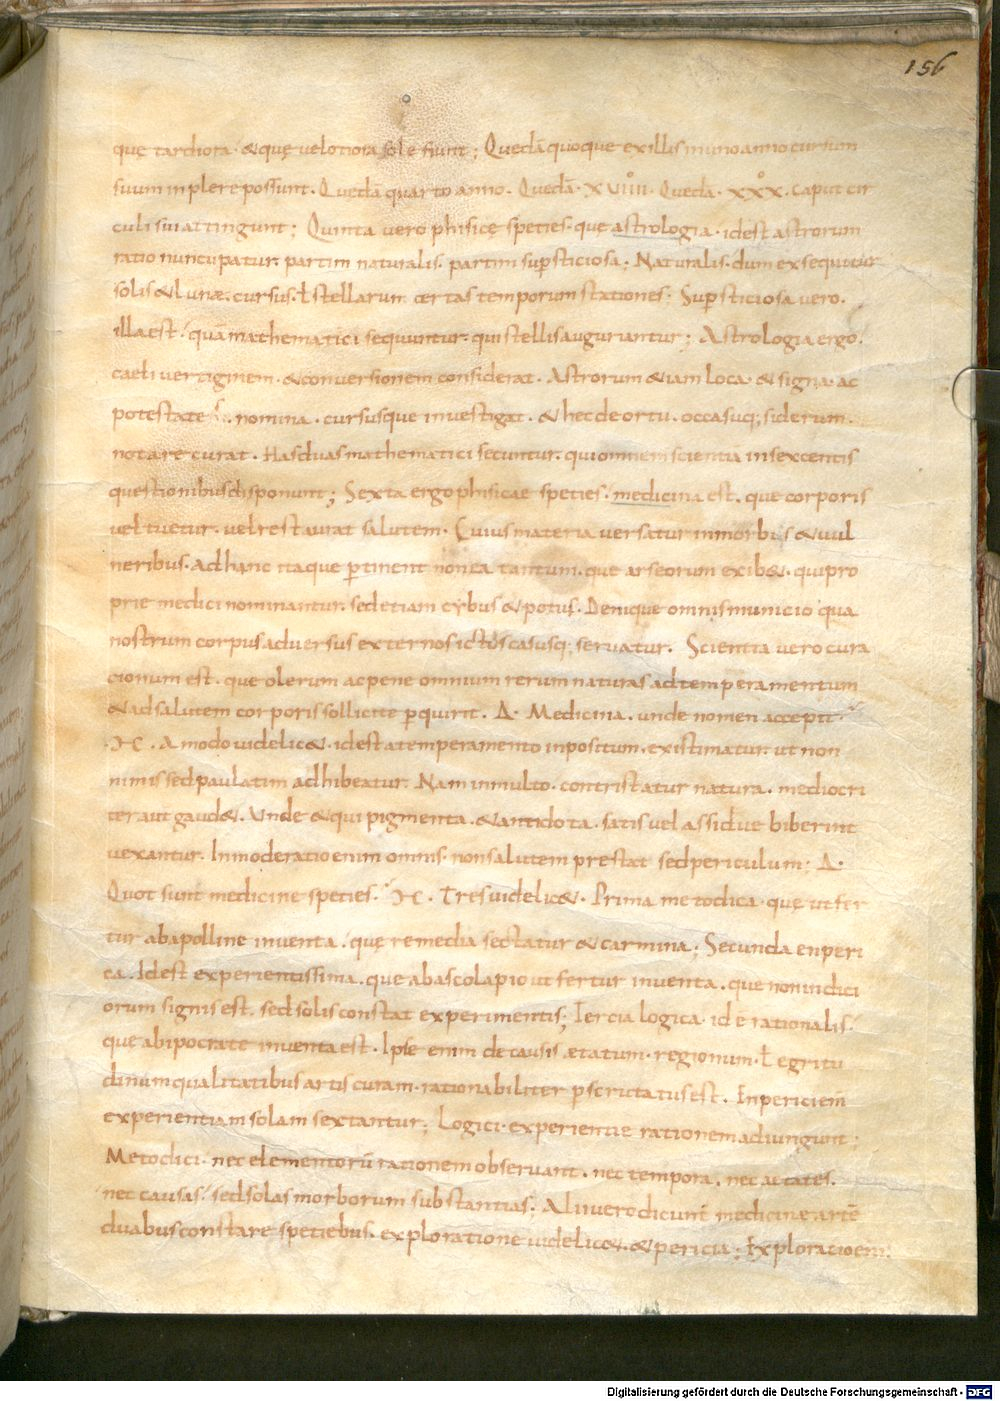 156
quę tardiora · & quę velotiora sole fiunt ; Quedā quoque ex illis in uno anno cursum
suum inplere possunt · Quedā quarto anno · Quedā · XVIIII · Quedā · XXX · caput cir
culi sui attingunt ; Quinta vero phisicę speties · que astrologia · idest astrorum
ratio nuncupatur · partim naturalis · partim supsticiosa ; Naturalis · dum exsequitur
solis & lunæ · cursus · ł stellarum certas temporum stationes ; Supsticiosa vero ·
illa est / quā mathematici sequuntur · qui stellis augurantur ; Astrologia ergo ·
caeli vertiginem · & conversionem considerat · Astrorum & iam loca · & signa · ac
potestate nomina · cursusque investigat · & hec de ortu · occasuq; siderum ·
notare curat · Has duas mathematici secuntur · qui omnem scientia in sexcentis
questionibus disponunt ; Sexta ergo phisicae speties · medicina est · que corporis
vel tuetur · vel restaurat salutem · Cuius materia versatur in morbis & vul
neribus · Ad hanc itaque ptinent non ea tantum · que arseorum exib& · qui pro
prie medici nominantur · sed etiam cybus & potus · Denique omnis municio qua
nostrum corpus adversus externos ictus casusq; servatur · Scientia vero cura
cionum est · que olerum ac pene omnium rerum naturas ad temperamentum
& ad salutem corporis sollicite pquirit · Δ · Medicina · unde nomen accepit
· M · A modo videlic& · idest a temperamento inpositum · existimatur · ut non
nimis sed paulatim adhibeatur · Nam in multo · contristatur natura · mediocri
ter aut gaud& · Unde & qui pigmenta · & antidota · satis vel assidue biberint
vexantur · Inmoderatio enim omnis · non salutem prestat sed periculum ; Δ ·
Quot sunt medicine speties · M · Tres videlic& · Prima metodica · quę ut fer
tur ab apolline inventa · quę remedia sectatur & carmina ; Secunda enperi
ca · Idest experientissima · que ab ascolapio ut fertur inventa · que non indici
orum signis est · sed solis constat experimentis ; Tercia logica · id ē rationalis ·
que ab ipocrate inventa est · Ipse enim de causis ætatum · regionum · ł egritu
dinum qualitatibus artis curam · rationabiliter pscrutatus est · Enpericiem
experientiam solam sextantur ; Logici · experientie rationem adiungunt ;
Metodici · nec elementorū rationem observant · nec tempora · nec aetates ·
nec causas / sed solas morborum substantias ; Alii vero dicunt medicinæ artē
duabus constare spetiebus · exploratione videlic& · & pericia ; Exploratio em
Digitalisierung gefördert durch die Deutsche Forschungsgemeinschaft - DFG